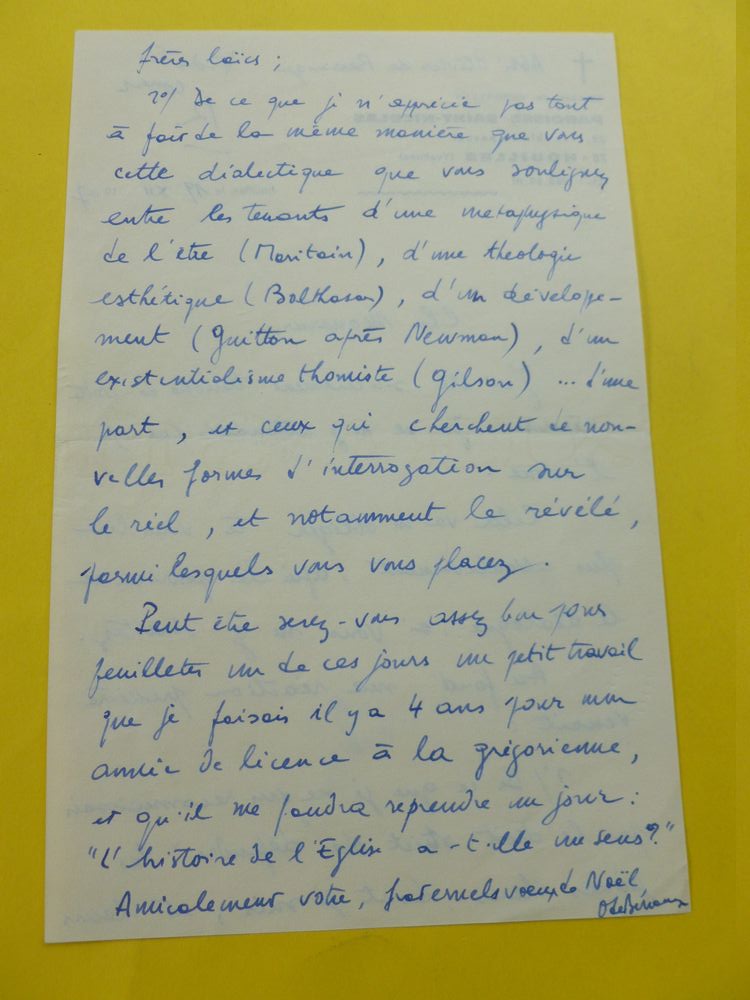 frères laïcs ;
2°/ De ce que je n'apprécie pas tout
à fait de la même manière que vous
cette dialectique que vous soulignez
entre les tenants d'une métaphysique
de l'être (Maritain), d'une théologie
esthétique (Balthasar), d'un dévelope-
ment (Guitton après Newman), d'un
existentialisme thomiste (Gilson) ... d'une
part, et ceux qui cherchent de nou-
velles formes d'interrogation sur
le réel, et notamment le révélé,
parmi lesquels vous vous placez.
Peut être serez-vous assez bon pour
feuilleter un de ces jours un petit travail
que je faisais il y a 4 ans pour mon
année de licence à la grégorienne,
et qu'il me faudra reprendre un jour :
"L'histoire de l'Eglise a-t-elle un sens ?"
Amicalement vôtre, fraternels voeux de Noël